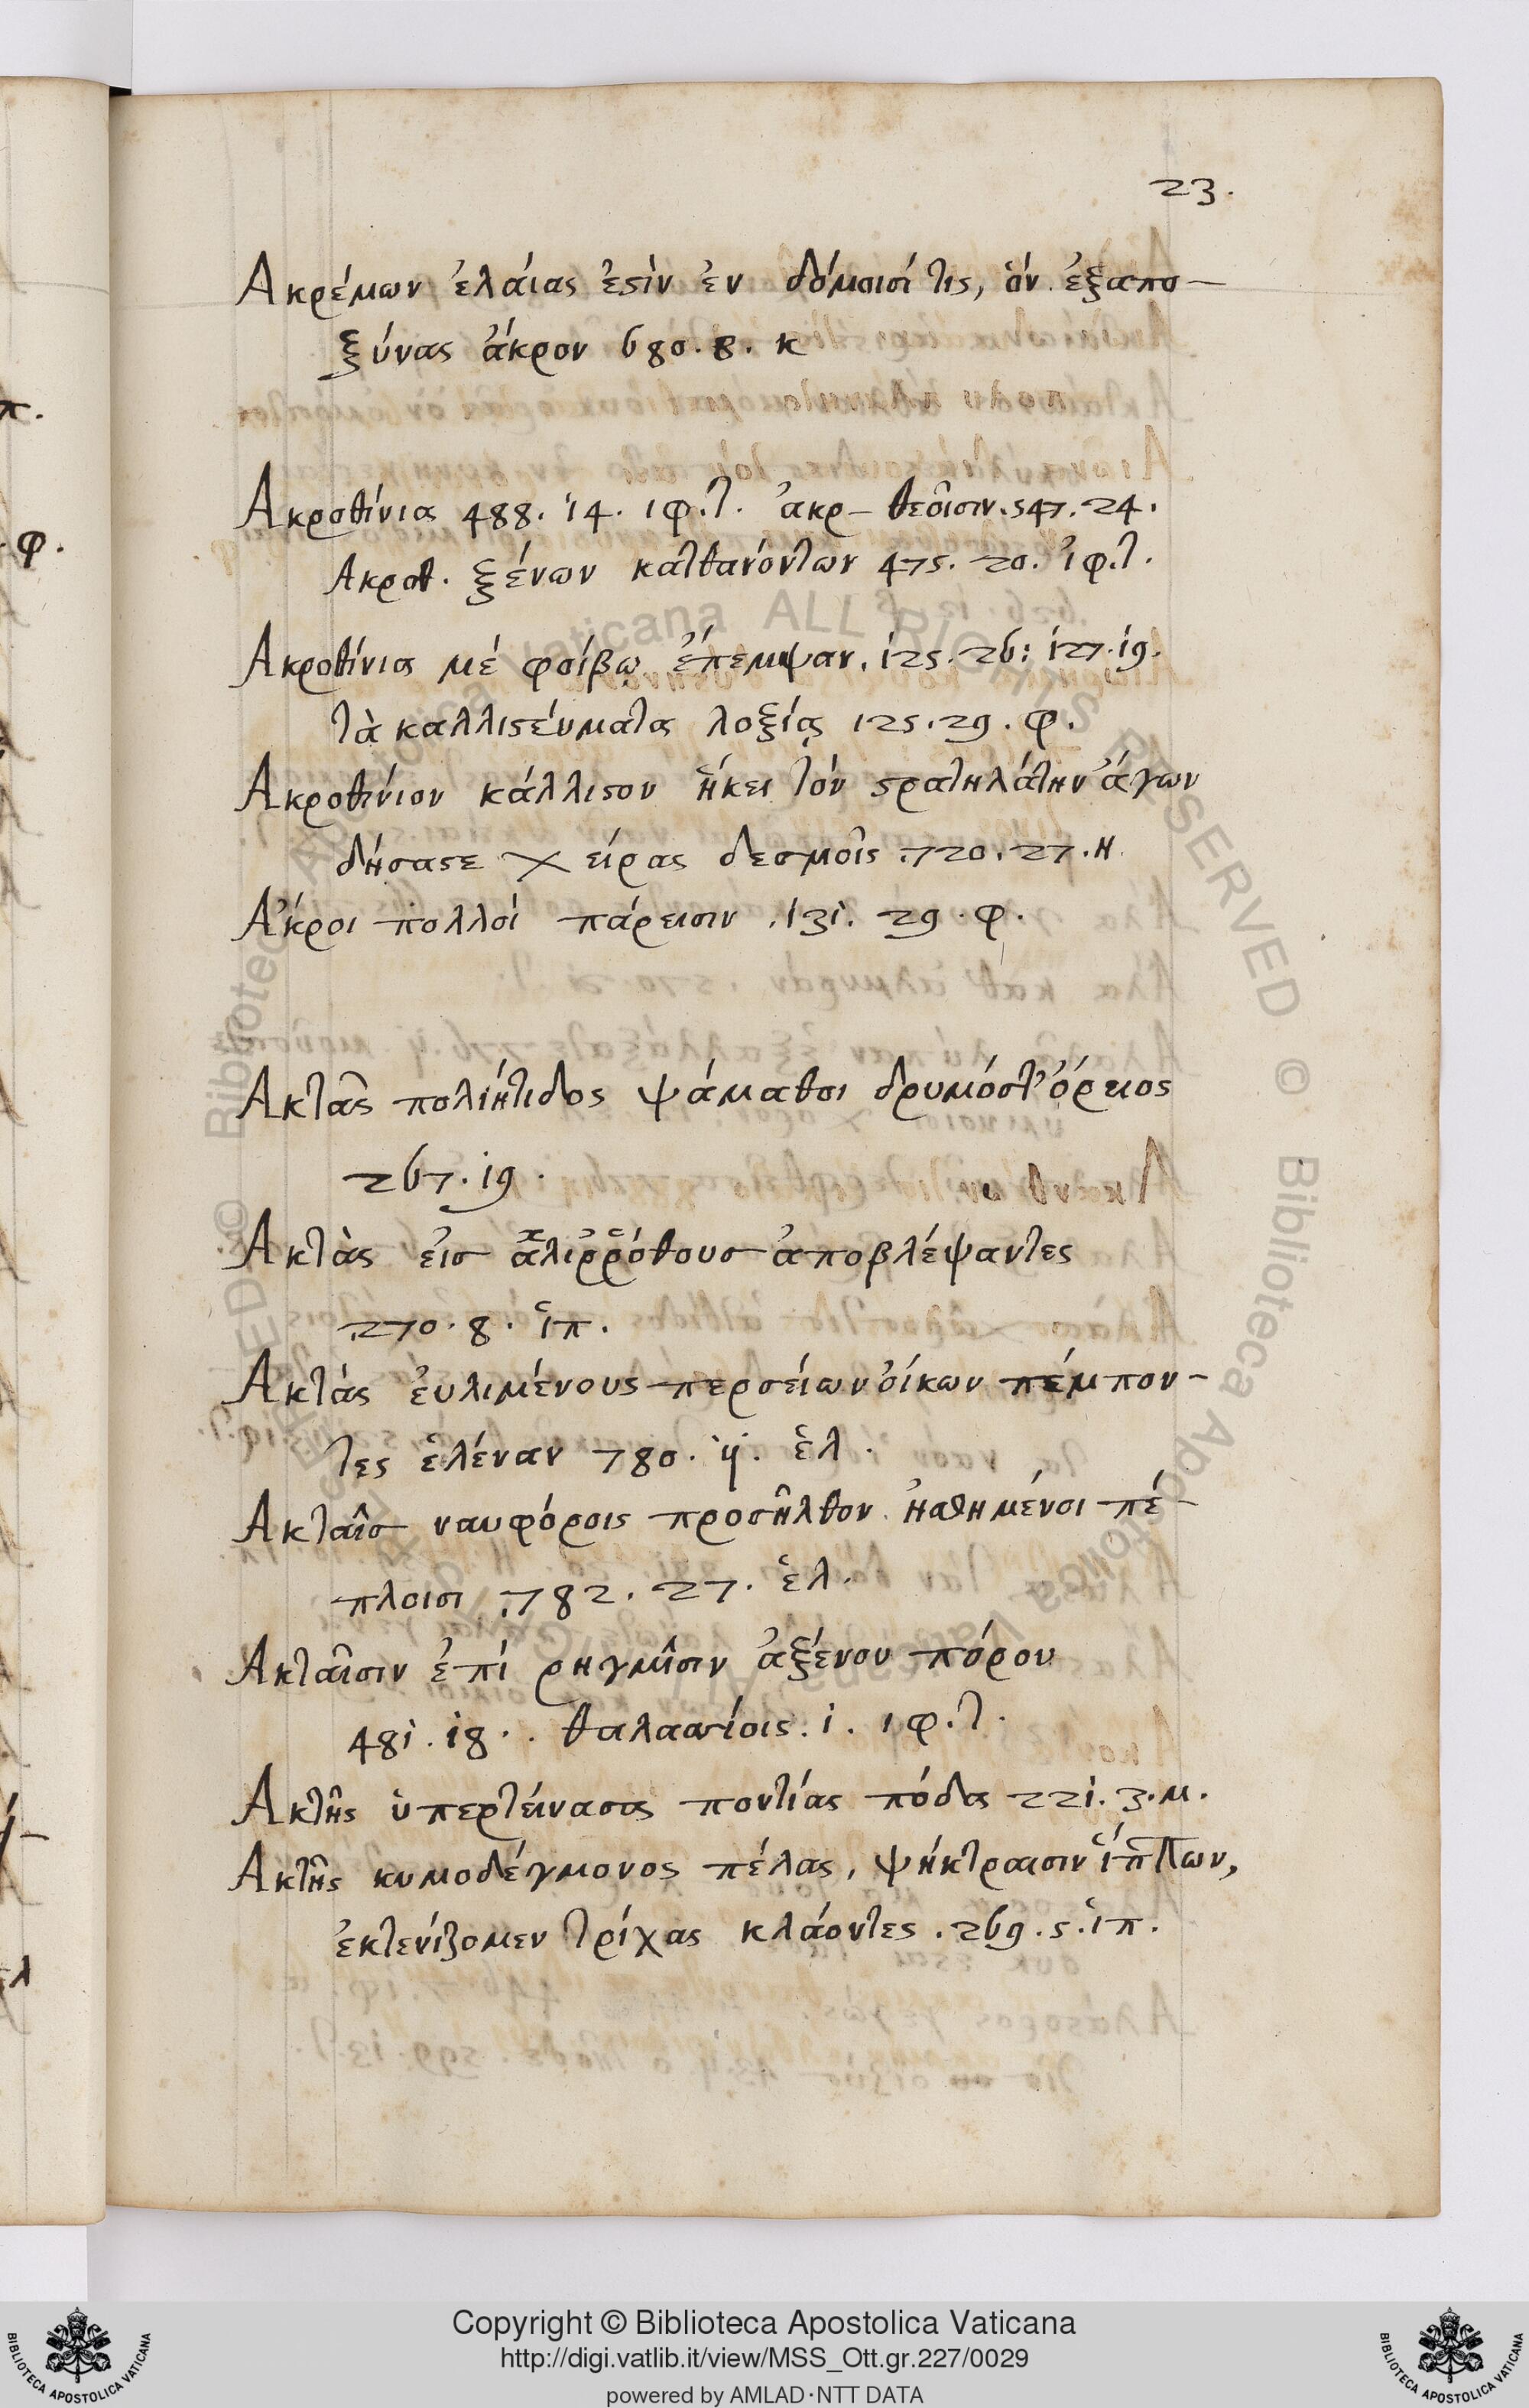 23.
Ακρέμων ἐλάιας ἐςὶν ἐν δόμοισί τις, ὁν ἐξαπο-
ξύνας ἄκρον 680. 8. κ
Ακροθίνια 488. 14. ιφ.τ. ἀκρ- θεοῖσιν. 547. 24.
Ακροθ. ξένων κατθανόντων 475. 20. ἰφ.τ.
Ακροθίνια μέ φοίβῳ ἔπεμψαν. 125. 26: 127. 19.
τὰ καλλιςεύματα λοξίᾳ 125. 29. φ.
Ακροθίνιον κάλλιςον ἥκει τόν ςρατηλάτην ἄγων
δήσαςε χείρας δεσμοῖς .720. 27. Η
Ἄκροι πολλοί πάρεισιν .131. 29. φ.
Ακτᾶς πολίητιδος ψάμαθοι δρυμόςτ' ὄρειος
267. 19.
Ακτὰς ἐισ ἁλιῤῥόθους ἀποβλέψαντες
.270. 8. ἱπ.
Ακτὰς ἐυλιμένους περσείων ὀίκων πέμπον-
τες ἑλέναν 780. 4. ἑλ.
Ακταῖσ ναυφόροις προσῆλθον ἠσθημένοι πέ-
πλοισι .782. 27. ἑλ.
Ακταῖσιν ἐπί ρηγμῖσιν ἀξένου πόρου
481. 18. . θαλασσίοις. 1. ιφ.τ.
Ακτῆς ὑπερτείνασα ποντίας πόδα 221. 3. μ.
Ακτῆς κυμοδέγμονος πέλας, ψήκτραισιν ἵππων,
ἐκτενίζομεν τρίχας κλάοντες .269. 5. ἱπ.
π.
φ.
Copyright © Biblioteca Apostolica Vaticana
http://digi.vatlib.it/view/MSS_Ott.gr.227/0029
powered by AMLAD·NTT DATA
BIBLIOTECA APOSTOLICA VATICANA
BIBLIOTECA APOSTOLICA VATICANA